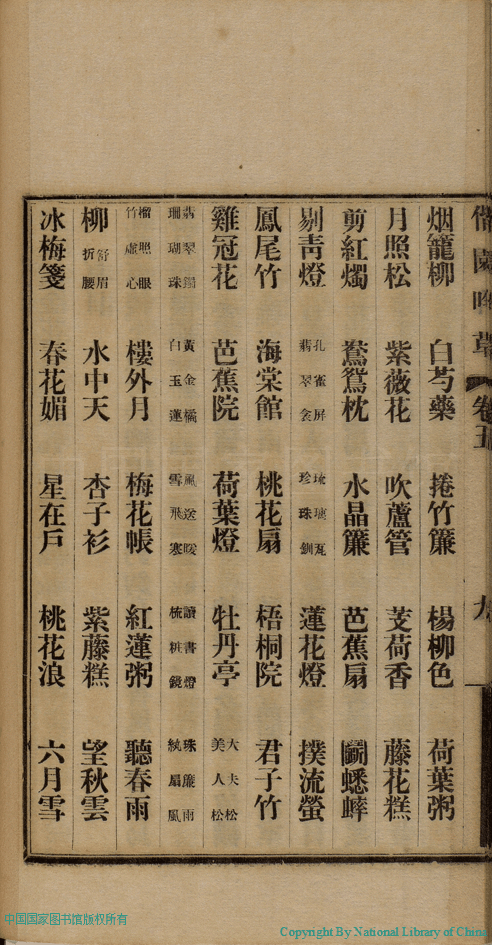 偕園吟草 卷五 九
烟籠柳 白芍藥 捲竹簾 楊柳色 荷葉粥
月照松 紫薇花 吹蘆管 芰荷香 藤花糕
剪紅燭 鴛鴦枕 水晶簾 芭蕉扇 鬭蟋蟀
剔青燈 孔雀屏 翡翠衾 琉璃瓦 珍珠釧 蓮花燈 撲流螢
鳳尾竹 海棠館 桃花扇 梧桐院 君子竹
雞冠花 芭蕉院 荷葉燈 牡丹亭 大夫松 美人松
翡翠鐲 珊瑚珠 黃金橘 白玉蓮 風送暖 雪飛寒 讀書燈 梳粧鏡 珠簾雨 紈扇風
榴照眼 竹虛心 樓外月 梅花帳 紅蓮粥 聽春雨
柳 舒眉 折腰 水中天 杏子衫 紫藤糕 望秋雲
冰梅箋 春花媚 星在戶 桃花浪 六月雪
中国国家图书馆版权所有
Copyright By National Library of China